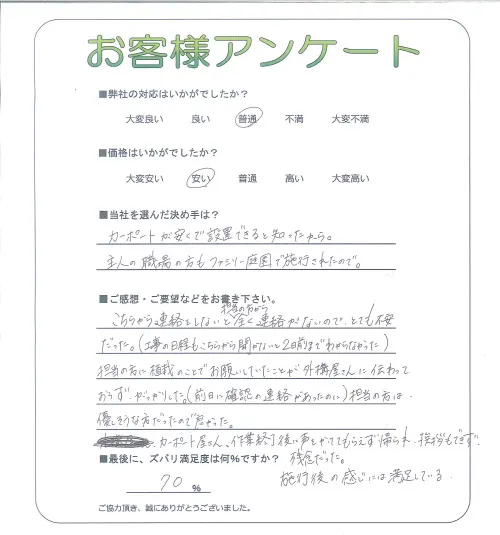 お客様アンケート
■弊社の対応はいかがでしたか?
大変良い 良い 普通 不満 大変不満
■価格はいかがでしたか?
大変安い 安い 普通 高い 大変高い
■当社を選んだ決め手は?
カーポートが安くで設置できると知ったから。
主人の職場の方もファミリー庭園で施行されたので。
■ご感想・ご要望などをお書き下さい。
担当の方から
こちらから連絡をしないと全く連絡がないので、とても不安
だった。(工事の日程もこちらから聞かないと2日前までわからなかった)
担当の方に植栽のことでお願いしていたことが外構屋さんに伝わって
おらず、がっかりした。(前日に確認の連絡があったのに)担当の方は、
優しそうな方だったので
カーポート屋さん、作業終了後に声をかけてもらえず帰られ、挨拶もできず、
■最後に、ズバリ満足度は何%ですか? 残念だった。
70 %
施行後の感じには満足している。
ご協力頂き、誠にありがとうございました。